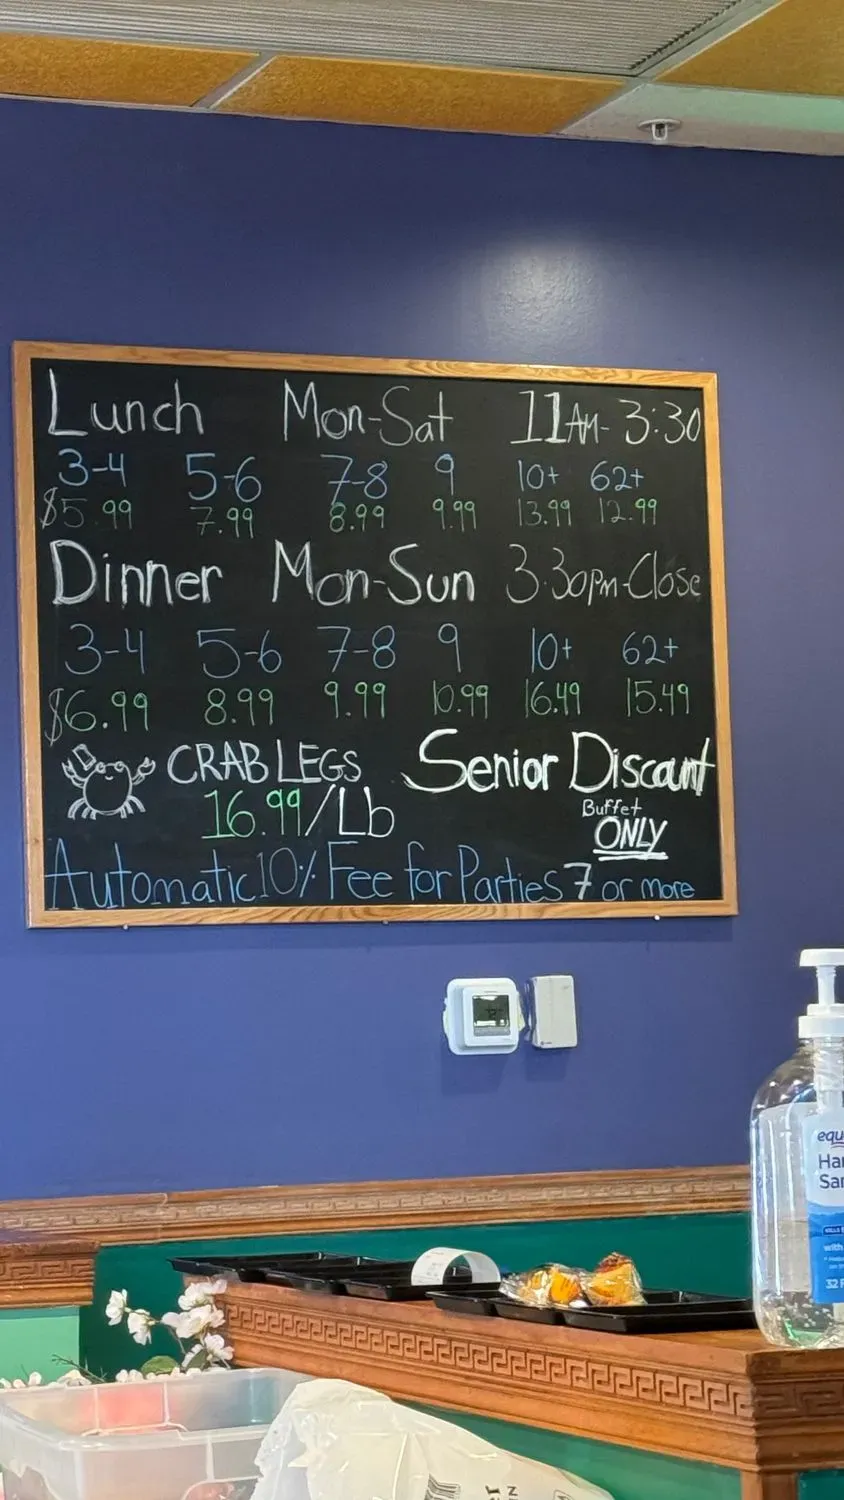 Lunch Mon-Sat 11AM- 3:30
3-4 5-6 7-8 9 10+ 62+
$5.99 7.99 8.99 9.99 13.99 12.99
Dinner Mon-Sun 3:30pm-Close
3-4 5-6 7-8 9 10+ 62+
$6.99 8.99 9.99 10.99 16.49 15.49
CRAB LEGS Senior Discount
16.99/Lb Buffet
ONLY
Automatic 10% Fee for Parties 7 or more
equ
Har
Sar
with
32 F